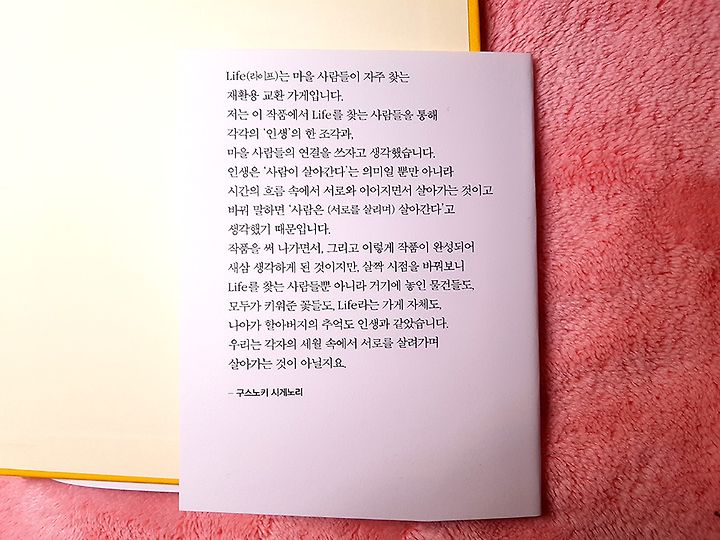 Life(라이프)는 마을 사람들이 자주 찾는
재활용 교환 가게입니다.
저는 이 작품에서 Life를 찾는 사람들을 통해
각각의 '인생'의 한 조각과,
마을 사람들의 연결을 쓰자고 생각했습니다.
인생은 '사람이 살아간다'는 의미일 뿐만 아니라
시간의 흐름 속에서 서로와 이어지면서 살아가는 것이고
바꿔 말하면 '사람은 (서로를 살리며) 살아간다'고
생각했기 때문입니다.
작품을 써 나가면서, 그리고 이렇게 작품이 완성되어
새삼 생각하게 된 것이지만, 살짝 시점을 바꿔보니
Life를 찾는 사람들뿐 아니라 거기에 놓인 물건들도,
모두가 키워준 꽃들도, Life라는 가게 자체도,
나아가 할아버지의 추억도 인생과 같았습니다.
우리는 각자의 세월 속에서 서로를 살려가며
살아가는 것이 아닐지요.
– 구스노키 시게노리